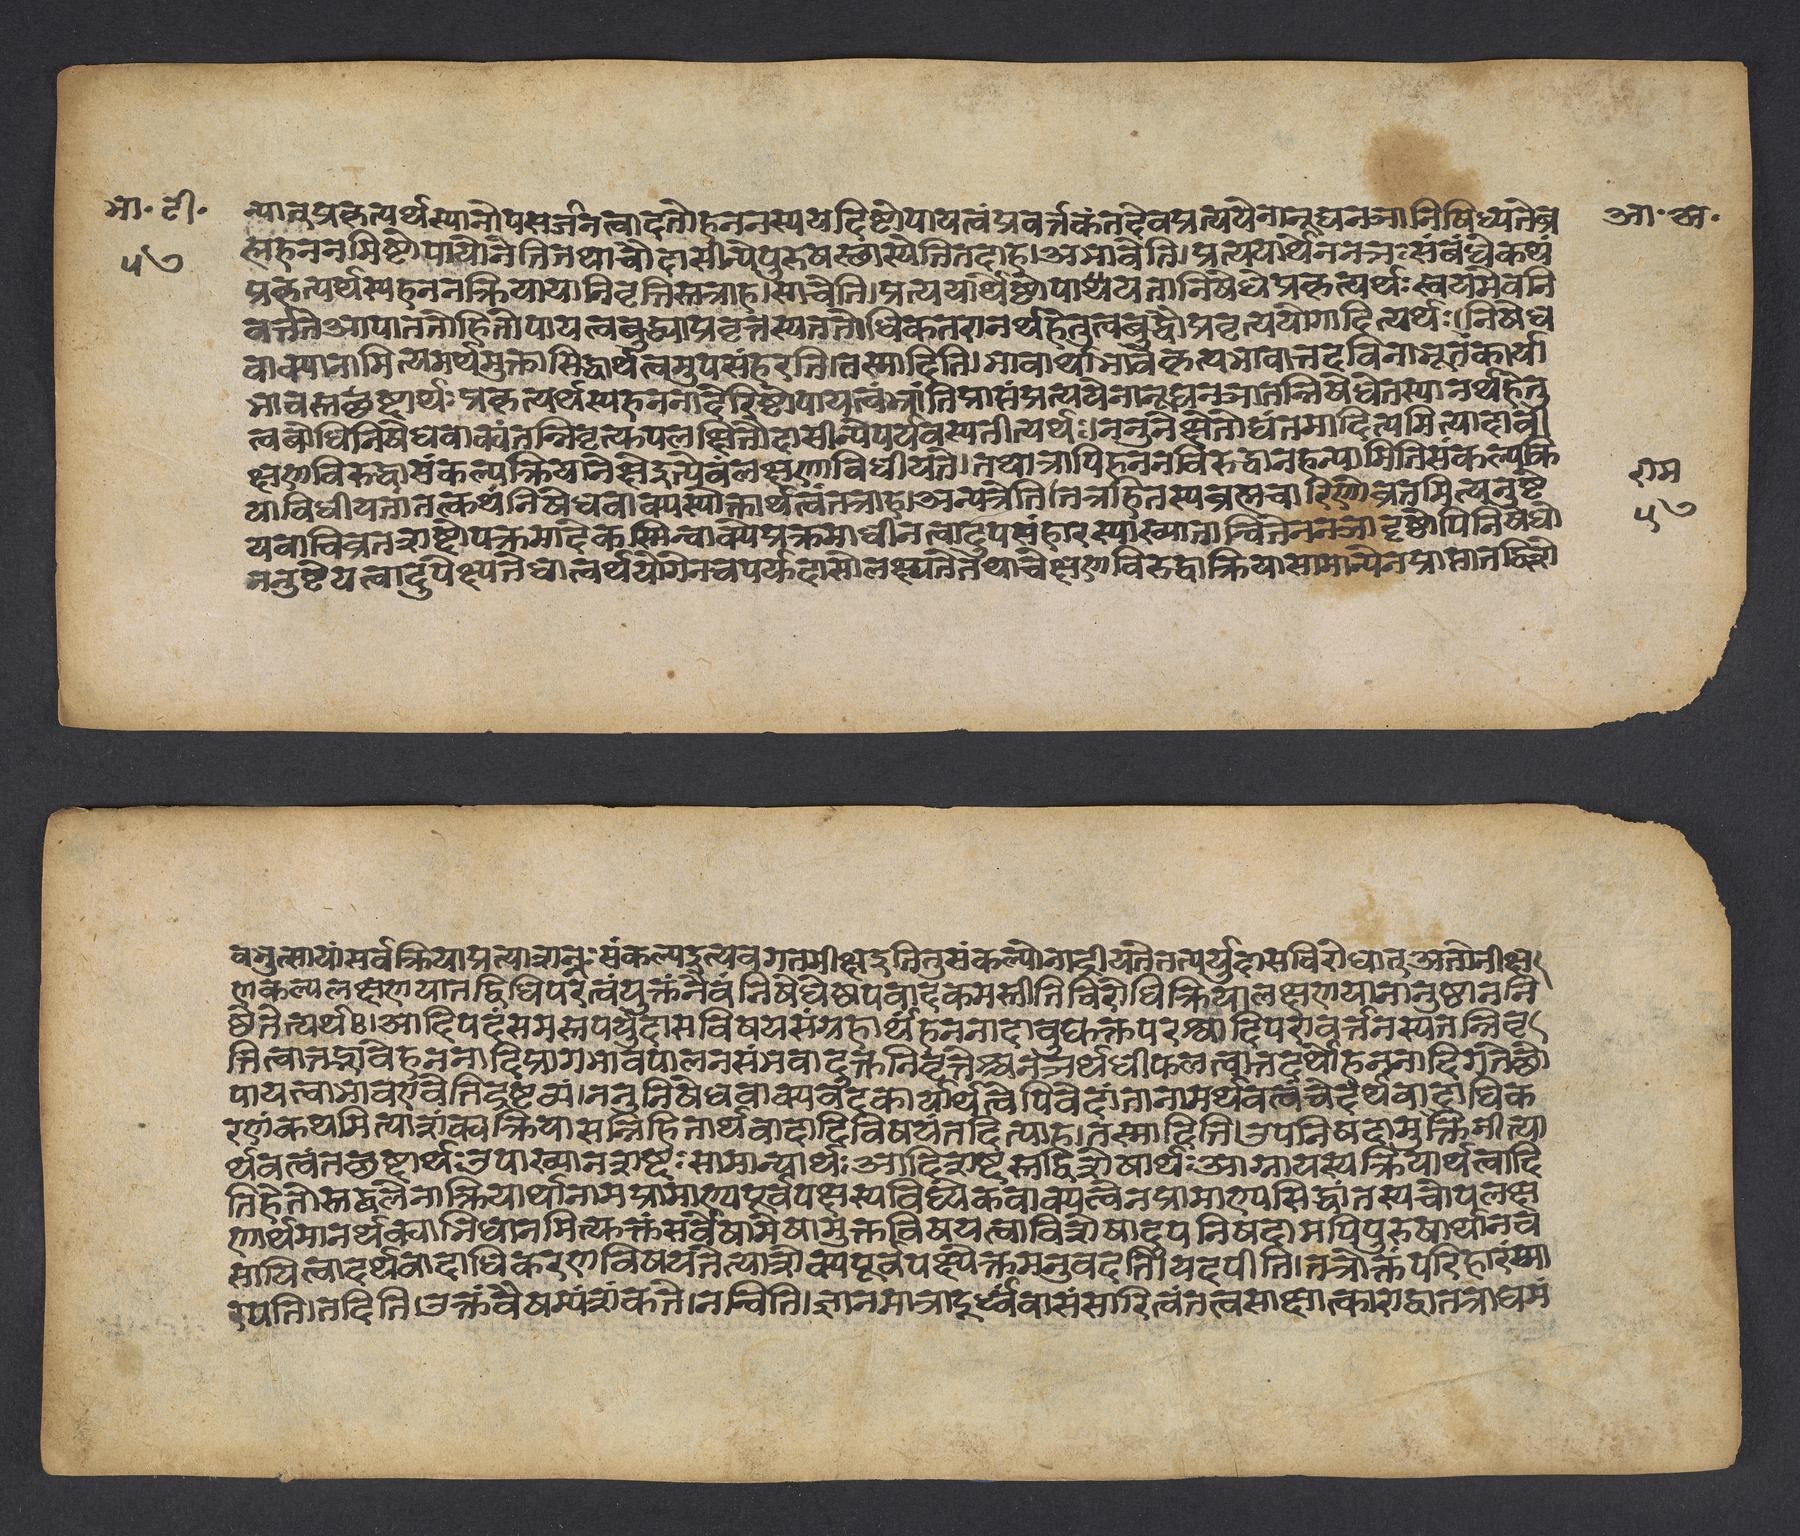 भा॰ टी॰
५७
आ॰ अ॰
न्यात्तु प्रकृत्यर्थस्यानोपसर्जनत्वादतोहननस्ययदिष्टोपायत्वंप्रवर्त्तकंतदेवप्रत्ययेनानूद्यनञानिषिध्यतेब्र
ह्महननमिष्टोपायोनेतितथाचौदासीन्येपुरुषस्छास्येतितदाह।अभावेति।प्रत्ययार्थेननञःसंबंधेकथं
प्रकृत्यर्थस्यहननक्रियायानिवृत्तिस्तत्राह।साचेति।प्रत्ययार्थेष्टोपायतानिषेधेप्रकृत्यर्थःस्वयमेवनि
वर्त्ततेआपाततोहितोपायत्वबुद्ध्याप्रवृत्तस्यततोधिकतरानर्थहेतुत्वबुद्धौप्रवृत्त्ययोगादित्यर्थः।निषेध
वाक्यानामित्यमर्थमुक्तासिद्धार्थत्वमुपसंहरति।तस्मादिति।भावार्थाभावेकृत्यभावात्तदविनाभूतंकार्या
भावस्तच्छब्दार्थःप्रकृत्यर्थस्यहननादेरिष्टोपायत्वंभ्रांतिप्राप्तंप्रत्ययेनानूद्यनञातन्निषेधेतस्यानर्थहेतु
त्वबोधिनिषेधवाक्यंतन्निवृत्त्युपलक्षितौदासीन्येपर्यवस्यतीत्यर्थः।ननुनेक्षेतोद्यंतमादित्यमित्यादावी
क्षणविरुद्धासंकल्पक्रियानेक्षेइत्येवंलक्षणाविधीयते।तथात्रापिहननविरुद्धानहन्यामितिसंकल्पक्रि
याविधीयतांतत्कथंनिषेधवाक्यस्योक्तार्थत्वंतत्राह।अन्यत्रेति।तत्रहितस्यब्रह्मचारिणोव्रतमित्यनुष्टे
यवाचिव्रतशब्दोपक्रमादेकस्मिन्वाक्येप्रक्रमाधीनत्वादुपसंहारस्याख्यातान्वितेननञादृष्टोपिनिषेधो
ननुष्टेयत्वादुपेक्ष्यतेधात्वर्थयोगेनचपर्युदासोलक्ष्यतेतथाचेक्षणविरुद्धाक्रियासामान्येनप्राप्तातद्विशे
राम
५७
वबुभुत्सायांसर्वक्रियाप्रत्यासन्नःसंकल्पइत्यवगतमीक्षइतितुसंकल्पोनाद्रीयतेतत्पर्युदासविरोधात्अतोनीक्ष
णकल्पलक्षणयातद्विधिपरत्वंयुक्तंनैवंनिषेधेष्वपवादकमस्तीतिविरोधिक्रियालक्षणयानानुष्ठाननि
ष्ठतेत्यर्थः।आदिपदंसमस्तपर्युदासविषयसंग्रहार्थंहननादावुद्यक्तपरश्वादिपरावर्त्तनस्यतन्निवृ
त्तित्वात्तद्भावेहननादिप्रागभावपालनसंभवादुक्तनिवृत्तेश्चानर्थधीफलत्वात्तदर्थोहननादिगतेष्टो
पायत्वाभावएवेतिद्रष्टव्यं।ननुनिषेधवाक्यवदकार्यार्थत्वेपिवेदांतानामर्थवत्वंचेदर्थवादाधिक
रणंकथमित्याशंक्यक्रियासन्निहितार्थवादादिविषयंतदित्याह।तस्मादिति।उपनिषदामुक्तरीत्या
र्थवत्वंतच्छब्दार्थःउपाख्यानशब्दःसामान्यार्थःआदिशब्दस्तद्विशेषार्थःआम्नायस्यक्रियार्थत्वादि
तिहेतोस्तद्बलेनाक्रियार्थानामप्रामाण्यपूर्वपक्षस्यविध्येकवाक्यत्वेनप्रामाण्यसिद्धांतस्यचोपलक्ष
णार्थमानर्थक्याभिधानमित्युक्तंसर्वेषामेषामुक्तविषयत्वाविशेषादुपनिषदामपिपुरुषार्थानव
सायित्वादर्थवादाधिकरणविषयतेत्याशंक्यपूर्वपक्षोक्तमनुवदति।यदपीति।तत्रोक्तंपरिहारंस्मा
रयति।तदिति।उक्तंवैषम्यंशंकते।नन्विति।ज्ञानमात्रादूर्ध्वंवासंसारित्वंतत्त्वसाक्षात्काराद्वातत्राद्यम